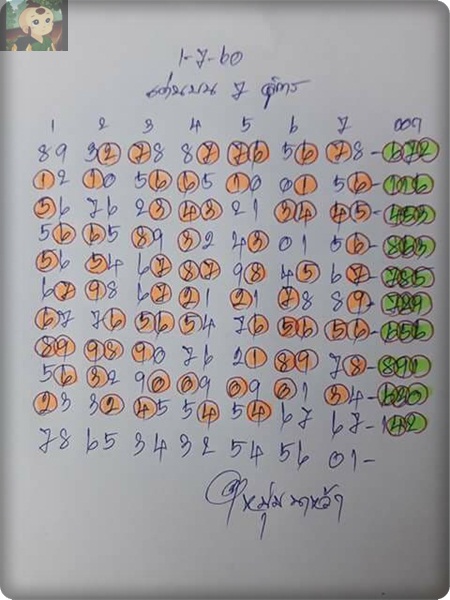 1-7-60
เด่นบน 7
1 2 3 4 5 6 7 ออก
89 32 78 87 76 56 78 - 672
12 10 56 65 10 01 56 - 116
56 76 23 43 21 34 45 - 453
56 65 89 32 43 01 56 - 863
56 54 67 87 98 45 67 - 785
67 98 67 21 21 78 89 - 729
67 76 56 54 76 56 56 - 556
89 98 90 76 21 89 78 - 891
56 32 90 09 09 01 34 - 630
23 32 45 54 54 67 67 - 142
78 65 34 32 54 56 01 -
หนุ่มนาหว้า